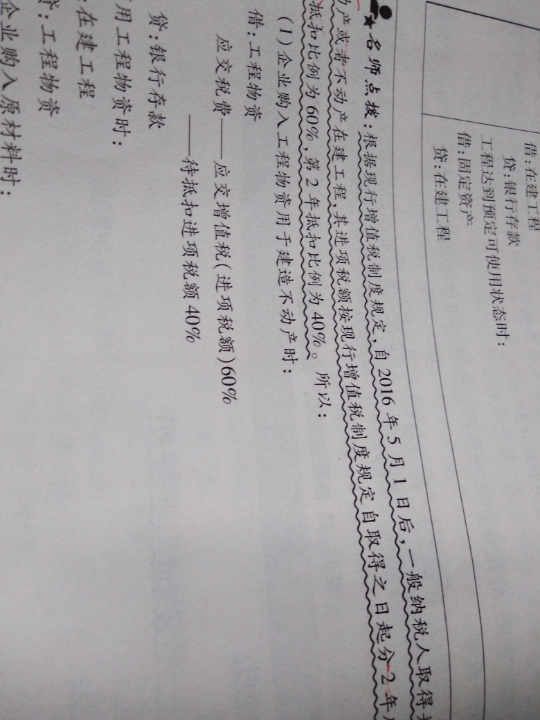 借:在建工程
贷:银行存款
工程达到预定可使用状态时:
借:固定资产
贷:在建工程
名师点拨:根据现行增值税制度规定,自2016年5月1日后,一般纳税人取得
产或者不动产在建工程,其进项税额按现行增值税制度规定自取得之日起分2年
抵扣比例为60%,第2年抵扣比例为40%。所以:
(1)企业购入工程物资用于建造不动产时:
借:工程物资
应交税费——应交增值税(进项税额)60%
——待抵扣进项税额40%
贷:银行存款
用工程物资时:
:在建工程
:工程物资
企业购入原材料时: